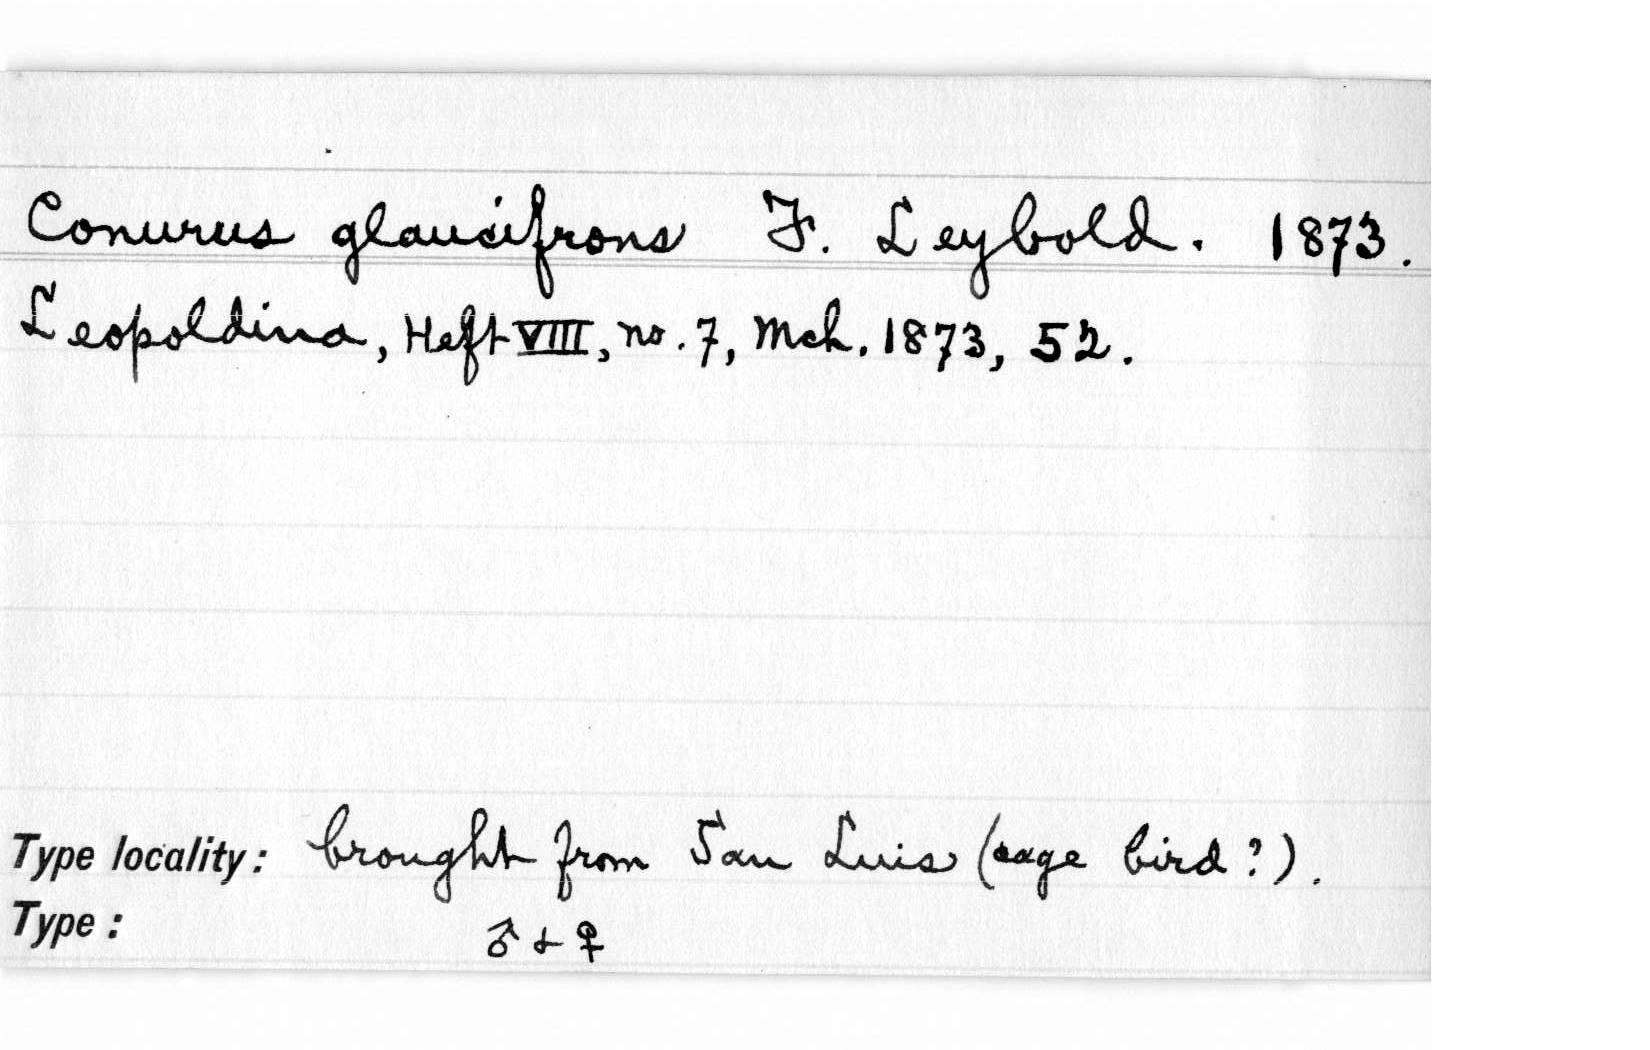 Conurus glaucifrons F. Leybold. 1873.
Leopoldina, Heft VIII, no. 7, Mch. 1873, 52.
Type locality: brought from San Luis (cage bird?).
Type: ♂ & ♀